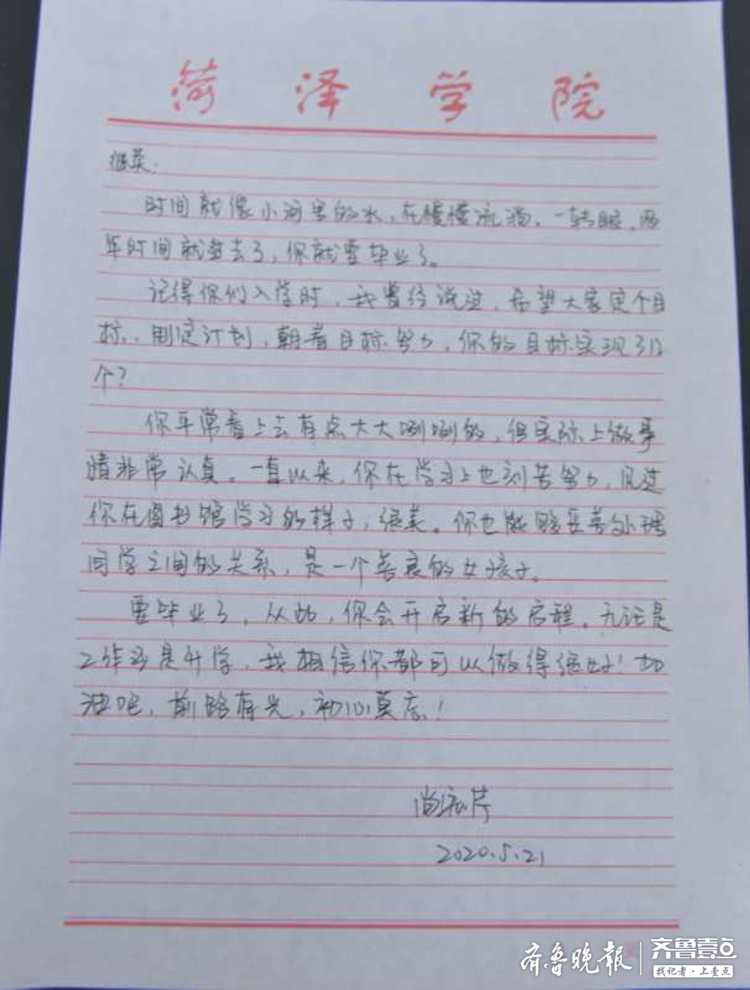 菏泽学院
时间就像小河里的水，在慢慢流淌。一转眼，两
年时间就过去了，你就要毕业了。
记得你们入学时，我曾经说过，希望大家定个目
标，制定计划，朝着目标努力，你的目标实现了几
个？
你平常看上去有点大大咧咧的，但实际上做事
情非常认真。一直以来，你在学习上也刻苦努力，见过
你在图书馆学习的样子，很美。你也能够妥善处理
同学之间的关系，是一个善良的女孩子。
要毕业了，从此，你会开启新的启程，无论是
工作还是升学，我相信你都可以做得很好！加
油吧，前路有光，初心莫忘！
2020.5.21
齐鲁晚报
齐鲁壹点
找记者·上壹点